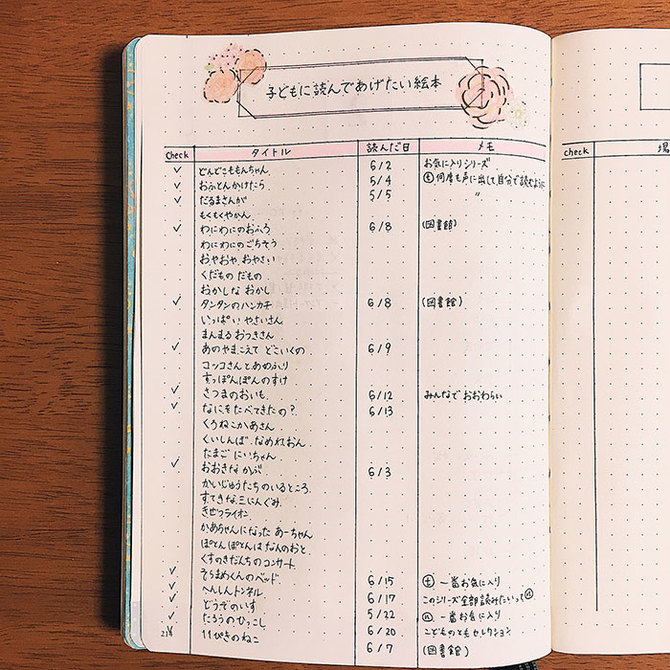 子どもに読んであげたい絵本
Check タイトル 読んだ日 メモ
✓ どんどこももんちゃん 6/2 お気に入りシリーズ
✓ おふとんかけたら 5/4 何度も声に出して自分で読むように
✓ だるまさんが 5/5 〃
もくもくやかん
✓ わにわにのおふろ 6/8 (図書館)
わにわにのごちそう
おやおや、おやさい
くだもの だもの
おかしな おかし
✓ タンタンのハンカチ 6/8 (図書館)
いっぱい やさいさん
まんまる おつきさん
✓ あのやまこえて どこいくの 6/9
コッコさんとあめふり
すっぽんぽんのすけ
✓ さつまのおいも 6/12 みんなで おおわらい
✓ なにをたべてきたの? 6/13
くうねこかあさん
くいしんぼ なめれおん
たまご にいちゃん
✓ おおきな かぶ 6/3
かいじゅうたちのいるところ
すてきな三にんぐみ
きぜつライオン
かあちゃんになった あーちゃん
ぽとんぽとんはなんのおと
くすのきだんちのコンサート
✓ そらまめくんのベッド 6/15 一番お気に入り
✓ へんしんトンネル 6/17 このシリーズ全部読みたいって
✓ どうぞのいす 5/22 一番お気に入り
✓ たろうのひっこし 6/20 こどものともセレクション
11ぴきのねこ 6/7 (図書館)
check 場